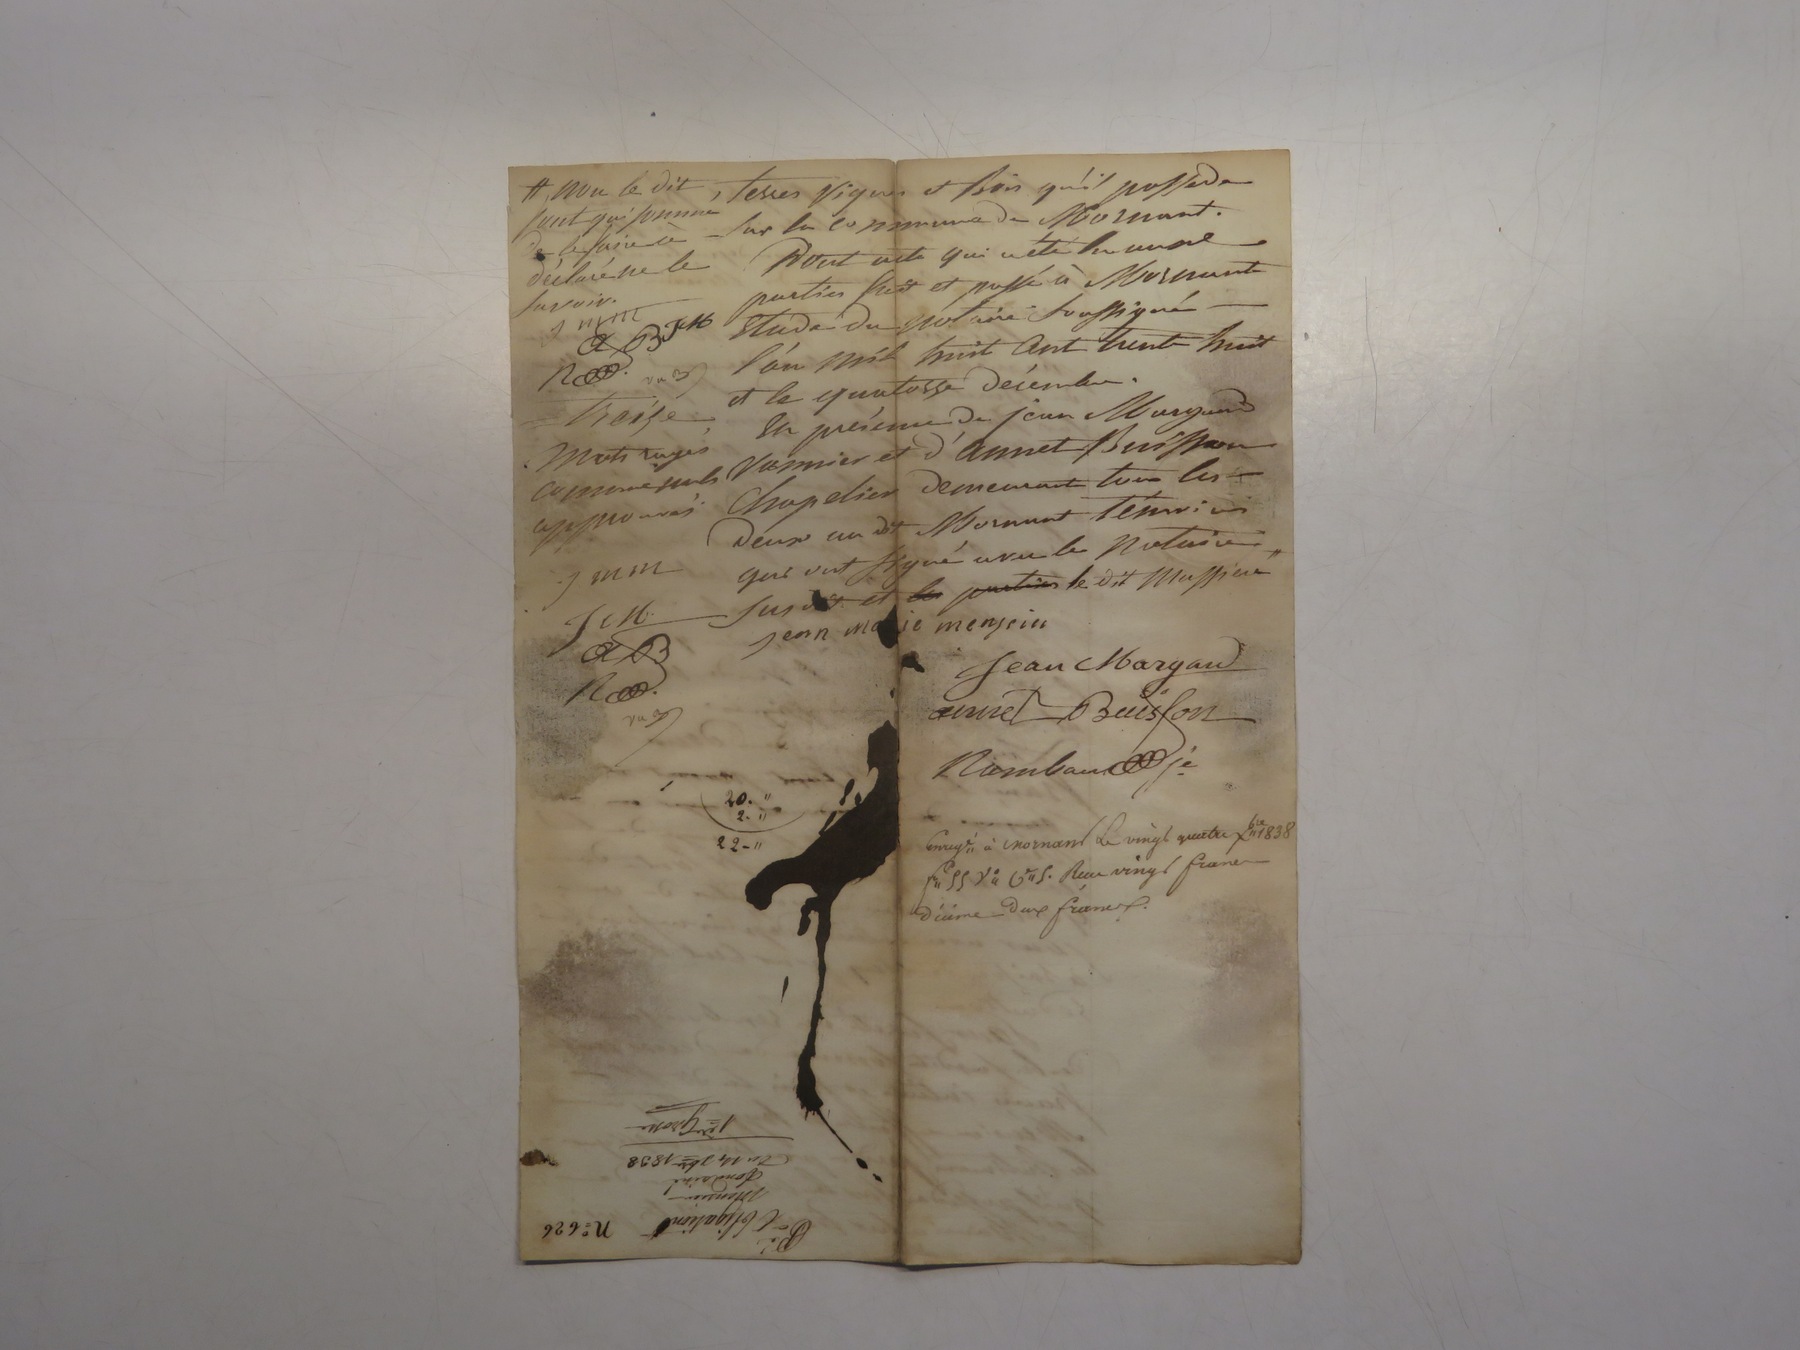 terres vignes et bois qu'il possede
sur la commune de Mornant.
Dont acte qui a été lu aux
parties fait et passé à Mornant
étude du notaire soussigné
l'an mil huit cent trente huit
et le quatorze décembre.
En présence de jean Margand
Vannier et d'annet Buisson
Chapelier demeurant tous les
deux au dit Mornant témoins
qui ont signé avec le Notaire
susdit et les parties le dit
jean marie
Jean Margand
annet Buisson
Rambaud
# Non le dit
qui sommé
de le faire a
déclaré ne le
savoir.
J mm
A B JCM
R
Treize
Mots rayés
comme nuls
approuvés
J mm
JCM
AB
R
20. "
2. "
22 - "
Enregé à Mornant le vingt quatre Xbre 1838
Reçu vingt francs
décime deux francs.
Obligation
Du 14 Xbre 1838
1ère Grosse
N° 626